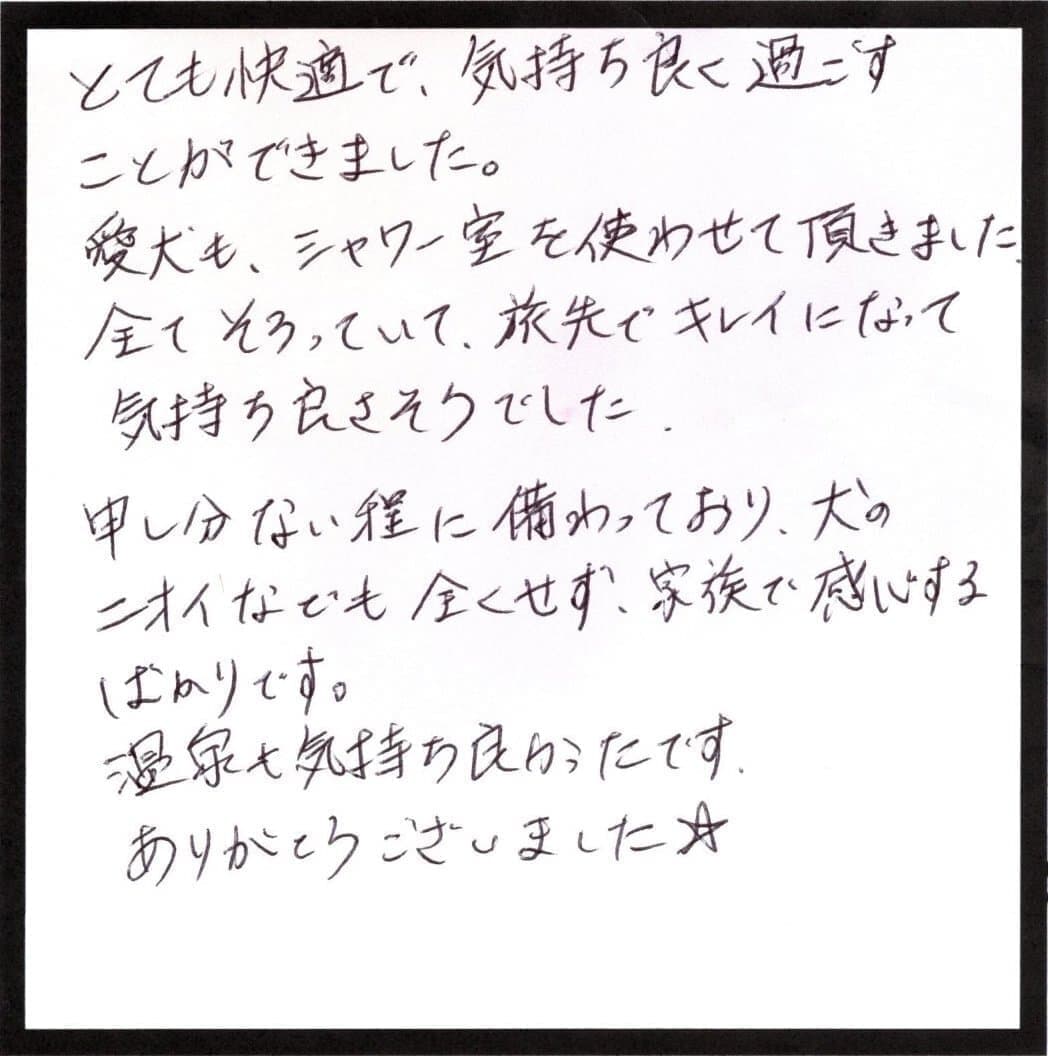 とても快適で、気持ち良く過ごす
ことができました。
愛犬も、シャワー室を使わせて頂きました.
全てそろっていて、旅先でキレイになって
気持ち良さそうでした.
申し分ない程に備わっており、犬の
ニオイなでも全くせず、家族で感心する
ばかりです。
温泉も気持ち良かったです.
ありがとうございました☆